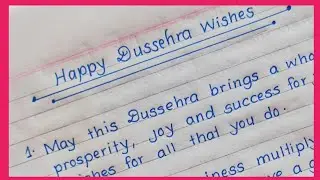 Happy Dussehra Wishes
1. May this Dussehra brings a
prosperity, joy and success for
for all that you do.
multiply